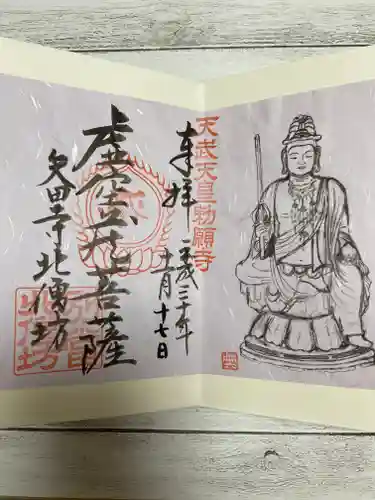 天武天皇勅願寺
奉拝
平成三十年
十一月十七日
虚空蔵菩薩
矢田寺北僧坊